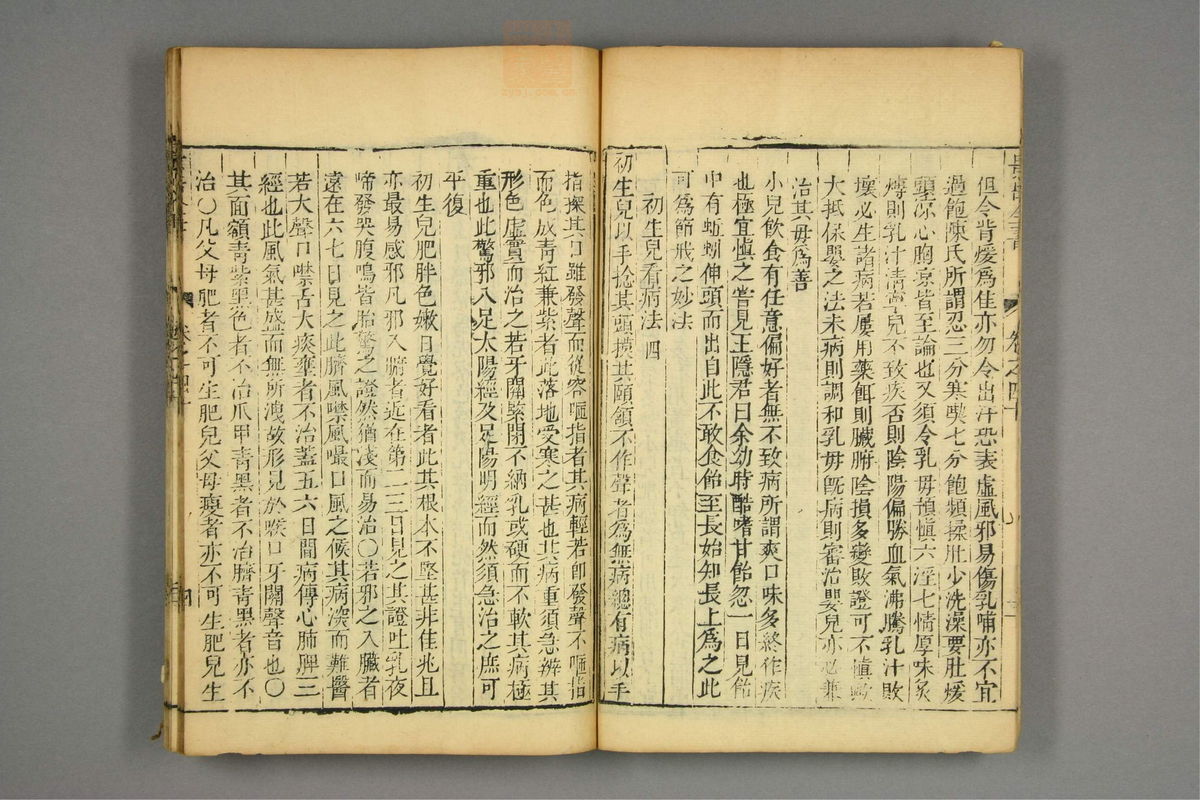 但令背煖爲佳亦勿令出汗恐表虛風邪易傷乳哺亦不宜
過飽陳氏所謂忍三分寒喫七分飽頻揉肚少洗澡要肚煖
頭凉心胸凉皆至論也又須令乳母預慎六淫七情厚味炙
煿則乳汁清寧兒不致疾否則陰陽偏勝血氣沸騰乳汁敗
壞必生諸病若屢用藥餌則臟腑陰損多變敗證可不慎歟
大抵保嬰之法未病則調和乳母既病則審治嬰兒亦必兼
治其母爲善
小兒飲食有任意偏好者無不致病所謂爽口味多終作疾
也極宜慎之嘗見王隱君曰余幼時酷嗜甘飴忽一日見飴
中有蚯蚓伸頭而出自此不敢食飴至長始知長上爲之此
可爲節戒之妙法
初生兒看病法 四
初生兒以手捻其頭摸其頤頷不作聲者爲無病總有病以手
指探其口雖發聲而從容咂指者其病輕若即發聲不咂指
而色或青紅兼紫者此落地受寒之甚也其病重須急辨其
形色虛實而治之若牙關緊閉不納乳或硬而不軟其病極
重也此驚邪入足太陽經及足陽明經而然須急治之庶可
平復
初生兒肥胖色嫩日覺好看者此其根本不堅甚非佳兆且
亦最易感邪凡邪入臍者近在第一二三日見之其證吐乳夜
啼發哭腹鳴皆胎驚之證然猶淺而易治○若邪之入臟者
遠在六七日見之此臍風噤風嘬口風之候其病深而難醫
若大聲口噤舌大痰壅者不治蓋五六日間病傳心肺脾三
經也此風氣甚盛而無所洩故形見於喉口牙關聲音也○
其面額青紫黑色者不治爪甲青黑者不治臍青黑者亦不
治○凡父母肥者不可生肥兒父母瘦者亦不可生肥兒生
卷之四十